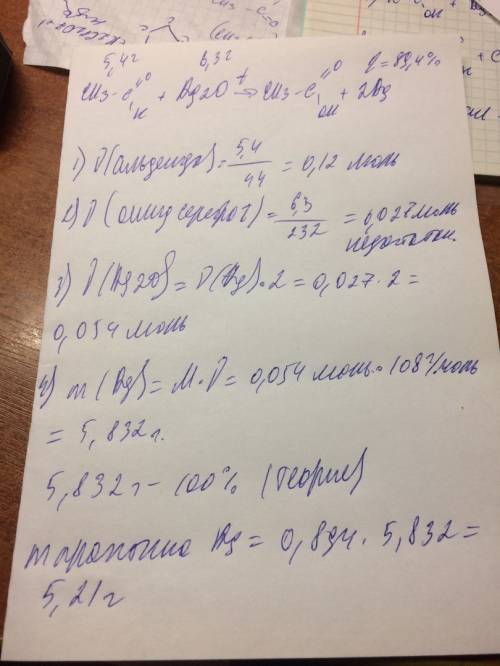 5,4г 6,3г η = 89,4%
CH3-C =O H + Ag2O t→ CH3-C =O OH + 2Ag
1) ν(альдегида) = 5,4/44 = 0,12 моль
2) ν(оксид серебра) = 6,3/232 = 0,027 моль
недостаток.
3) ν(Ag2O) = ν(Ag)·2 = 0,027·2 =
0,054 моль
4) m(Ag) = M·ν = 0,054 моль·108 г/моль
= 5,832 г.
5,832 г – 100% (теория)
m практич Ag = 0,894·5,832 =
5,21 г